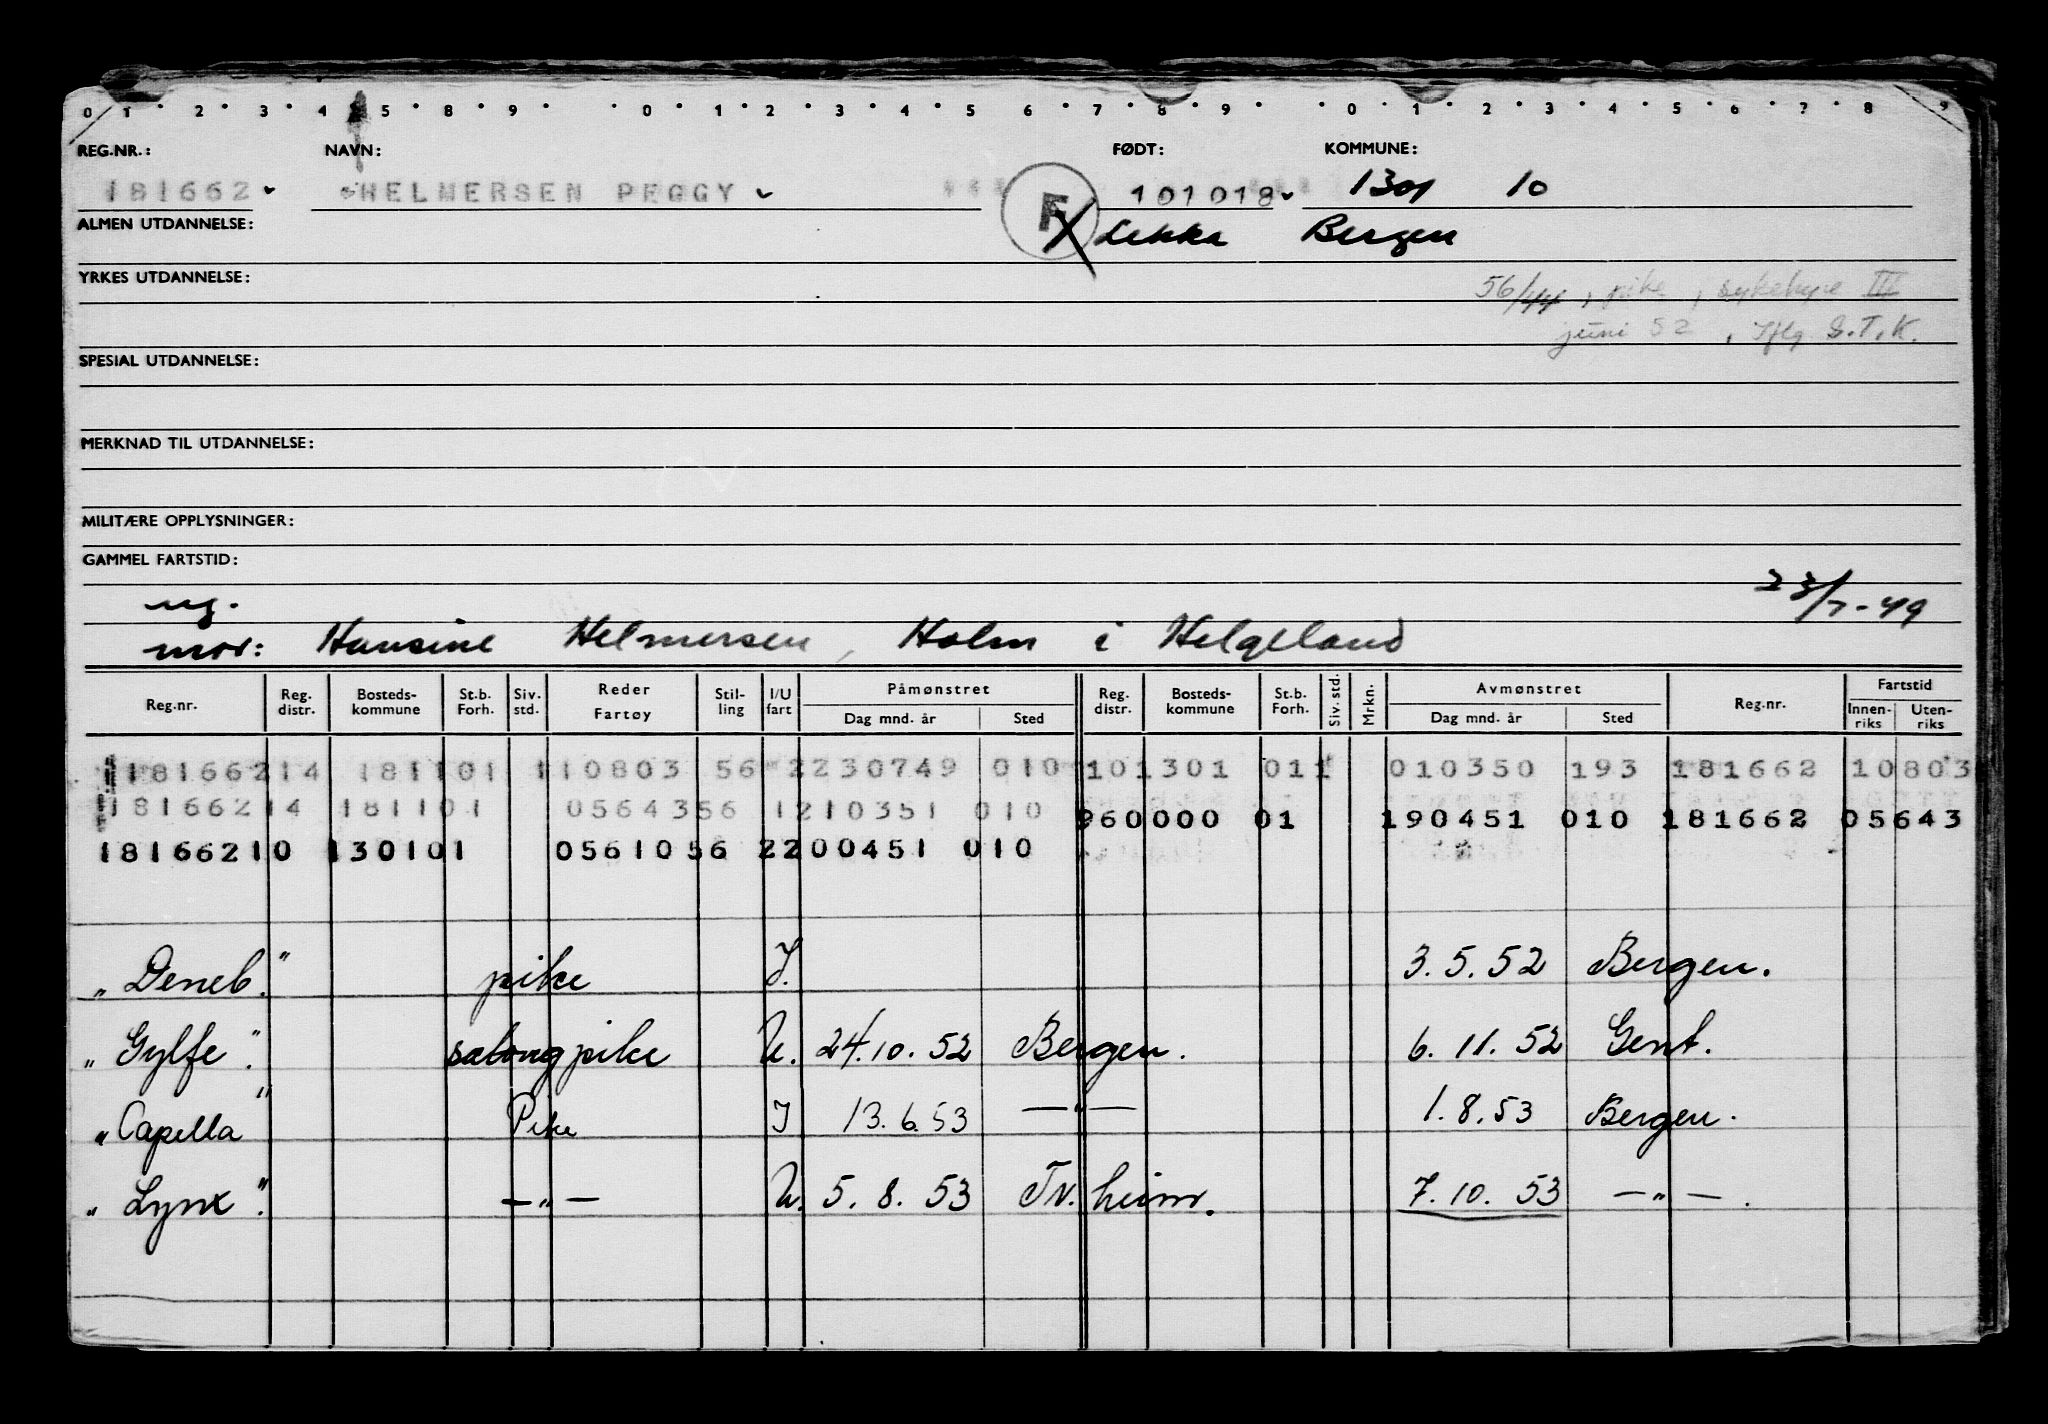 0 1 2 3 4 5 8 9 0 1 2 3 4 5 6 7 8 9 0 1 2 3 4 5 6 7 8 9
REG.NR.: NAVN: FØDT: KOMMUNE:
181662 HELMERSEN PEGGY F 101018 1301 10
ALMEN UTDANNELSE: Lekka Bergen
YRKES UTDANNELSE: 56/44, pike, III
juni 52, Iflg S.T.K.
SPESIAL UTDANNELSE:
MERKNAD TIL UTDANNELSE:
MILITÆRE OPPLYSNINGER:
GAMMEL FARTSTID:
ug. 23/7-49
mor: Hansine Helmersen, Holm i Helgeland
Reg.nr. Reg. distr. Bosteds- kommune St.b. Forh. Siv. std. Reder Fartøy Stil- ling I/U fart Påmønstret Dag mnd. år Sted Reg. distr. Bosteds- kommune St.b. Forh. Siv. std. Mrkn. Avmønstret Dag mnd. år Sted Reg.nr. Fartstid Innen- riks Uten- riks
18166214 181101 110803 56 2230749 010 101301 011 010350 193 181662 10803
18166214 181101 0564356 1210351 010 960000 01 190451 010 181662 05643
18166210 130101 0561056 2200451 010
"Deneb." pike I. 3.5.52 Bergen.
"Gylfe". salongpike U. 24.10.52 Bergen. 6.11.52 Gent.
"Capella" Pike I 13.6.53 —"— 1.8.53 Bergen.
"Lynx". —"— U. 5.8.53 Tr.heim. 7.10.53 —"—.